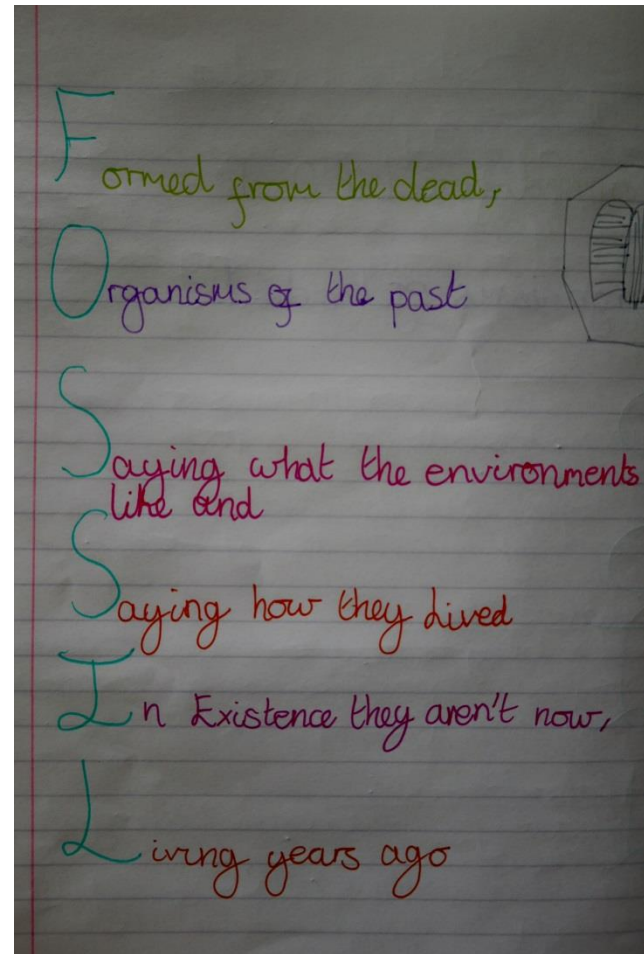 Formed from the dead,
Organisms of the past
Saying what the environments
like and
Saying how they Lived
In Existence they aren't now,
Living years ago